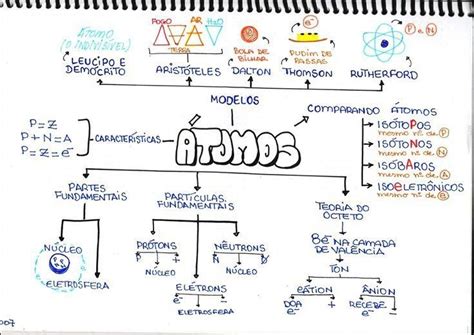 Átomo
(O INDIVISÍVEL)
LEUCIPO E
DEMÓCRITO
FOGO
AR
H₂O
TERRA
ARISTÓTELES
BOLA DE
BILHAR
DALTON
e⁻
PUDIM DE
PASSAS
THOMSON
P e N
RUTHERFORD
MODELOS
P=Z
P+N=A
P=Z=e⁻
CARACTERÍSTICAS
ÁTOMOS
COMPARANDO ÁTOMOS
ISÓTOPOS
mesmo nº de P
ISÓTONOS
mesmo nº de N
ISÓBAROS
mesmo nº de A
ISOeLETRÔNICOS
mesmo nº de e
PARTES
FUNDAMENTAIS
NÚCLEO
ELETROSFERA
PARTÍCULAS
FUNDAMENTAIS
PRÓTONS
P +
NÚCLEO
NEUTRONS
N
NÚCLEO
ELÉTRONS
e⁻ -
ELETROSFERA
TEORIA DO
OCTETO
8e⁻ NA CAMADA
DE VALÊNCIA
ÍON
CÁTION
DOA
e⁻ +
ÂNION
RECEBE
e⁻ -
007